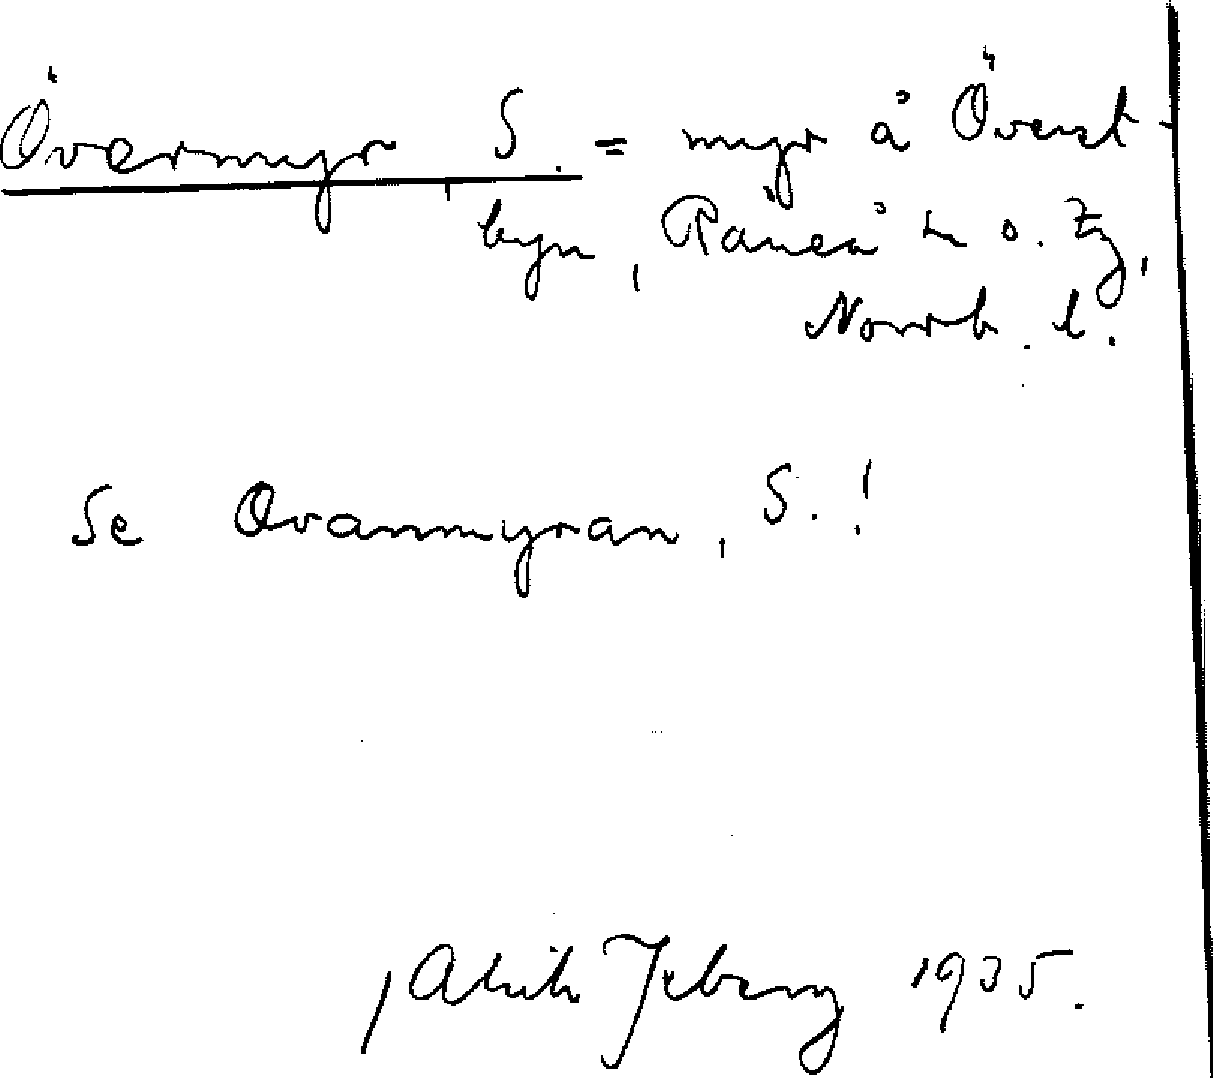 Övermyr, S. = myr å Överst-
byn, Råneå sn o. tg,
Norrb. l.
Se Ovanmyran, S.!
Isberg 1935.